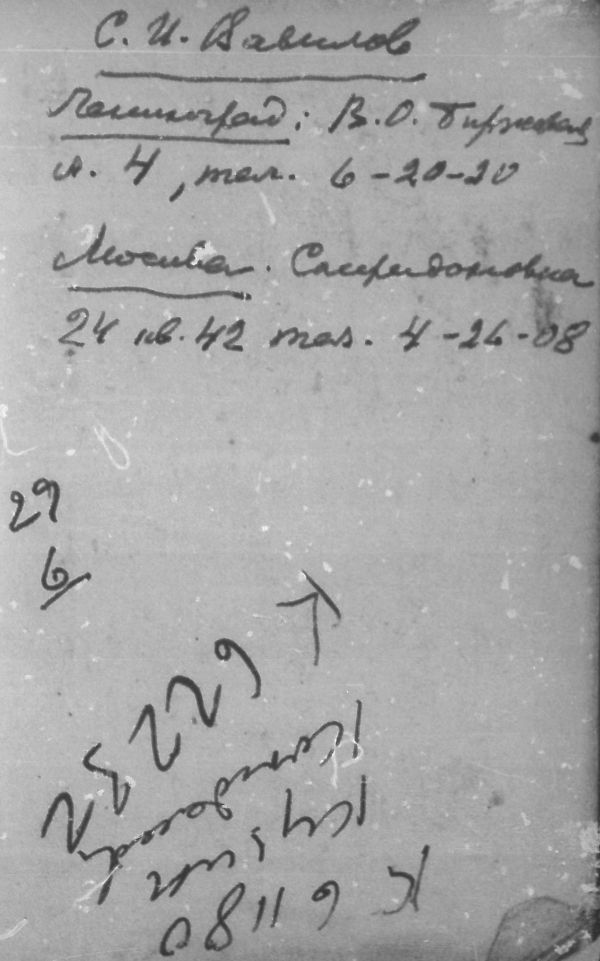 С. И. Вавилов
Ленинград: В.О. Биржевая
л. 4, тел. 6-20-20
Москва. Спиридоновка
24 кв. 42 тел. 4-26-08
29
6
25229
К 6 11 80